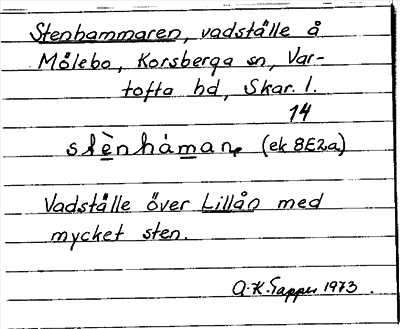 Stenhammaren, vadställe å
Målebo, Korsberga sn, Var-
tofta hd, Skar. l.
14
stènhàmaṇ (ek 8E2a)
Vadställe över Lillån med
mycket sten.
A.K. Tapper 1973.